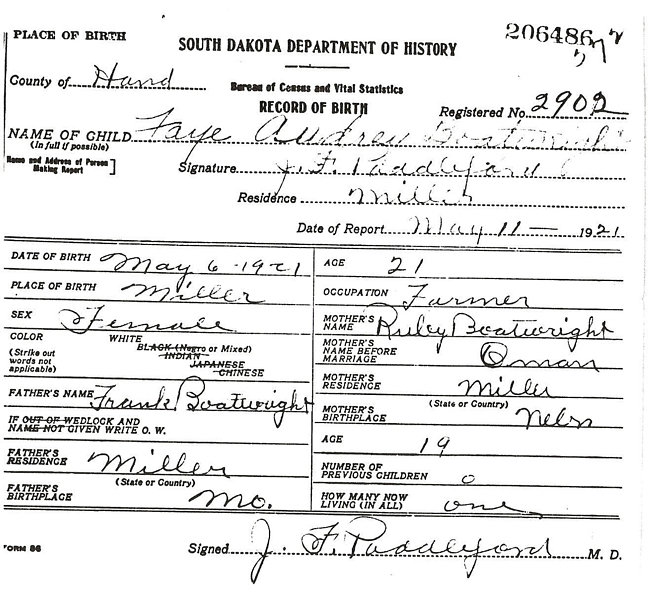 206486
PLACE OF BIRTH
SOUTH DAKOTA DEPARTMENT OF HISTORY
County of Hand
Bureau of Census and Vital Statistics
RECORD OF BIRTH
Registered No. 2902
NAME OF CHILD Faye Audrey Boatwright
(In full if possible)
Name and Address of Person Making Report ]
Signature J. F. Paddleford
Residence Miller
Date of Report May 11 — 1921
DATE OF BIRTH May 6 - 1921
PLACE OF BIRTH Miller
SEX Female
COLOR WHITE
(Strike out words not applicable)
BLACK (Negro or Mixed)
INDIAN
JAPANESE
CHINESE
FATHER'S NAME Frank Boatwright
IF OUT OF WEDLOCK AND
NAME NOT GIVEN WRITE O. W.
FATHER'S RESIDENCE Miller
(State or Country)
FATHER'S BIRTHPLACE Mo.
AGE 21
OCCUPATION Farmer
MOTHER'S NAME Ruby Boatwright
MOTHER'S NAME BEFORE MARRIAGE Oman
MOTHER'S RESIDENCE Miller
(State or Country)
MOTHER'S BIRTHPLACE
AGE 19
NUMBER OF PREVIOUS CHILDREN 0
HOW MANY NOW LIVING (IN ALL) one
FORM 86
Signed J. F. Paddleford M. D.